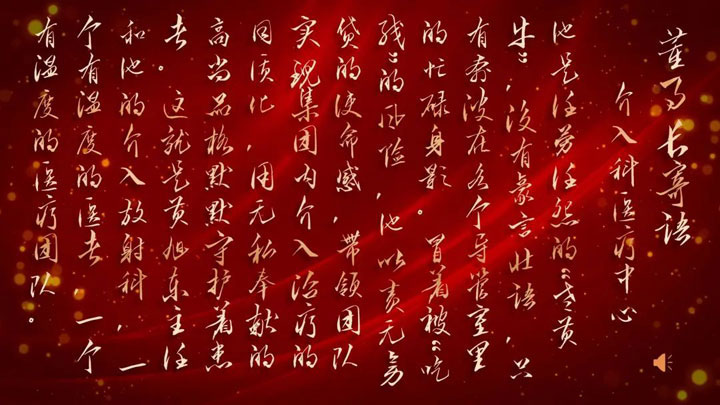 董事长寄语
介入科医疗中心
他是任劳任怨的“老黄
牛”，没有豪言壮语，只
有奔波在各个导管室里
的忙碌身影。冒着被“吃
线”的风险，他以责无旁
贷的使命感，带领团队
实现集团内介入治疗的
同质化，用无私奉献的
高尚品格默默守护着患
者。这就是黄旭东主任
和他的介入放射科，一
个有温度的医者，一个
有温度的医疗团队。